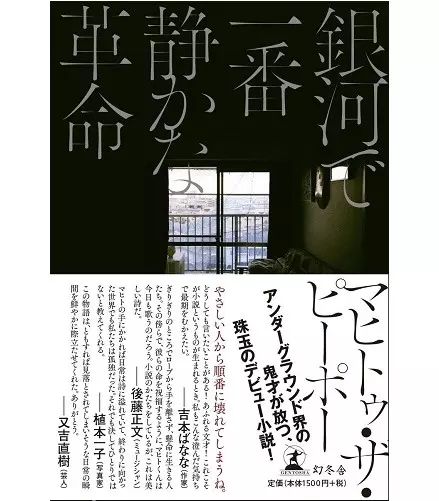 銀河で
一番
静かな
革命
マヒトゥ・ザ・
ピーポー
アンダーグラウンド界の
鬼才が放つ、
珠玉のデビュー小説!
GENTOSHA 幻冬舎
定価(本体1500円+税)
やさしい人から順番に壊れてしまうね。
どうしても言いたいことがある!あふれる文才!これこそ
が小説というものが生まれるとき。私もこんな澄んだ気持ち
で最期をむかえたい。
——吉本ばなな(作家)
ぎりぎりのところでロープから手を離さず、懸命に生きる人
たち。その傍らで、彼らの命を祝福するように、マヒトくんは
今日も歌うのだろう。小説のかたちをしているが、これは美
しい詩だ。
——後藤正文(ミュージシャン)
マヒトの手にかかれば日常は詩に溢れていて、終わりに向かっ
た世界でも私たちは孤独だった。それでも決してひとりじゃ
ないと教えてくれる。
——植本一子(写真家)
この物語は、ともすれば見落とされてしまいそうな日常の瞬
間を鮮やかに際立たせてくれた。ありがとう。
——又吉直樹(芸人)